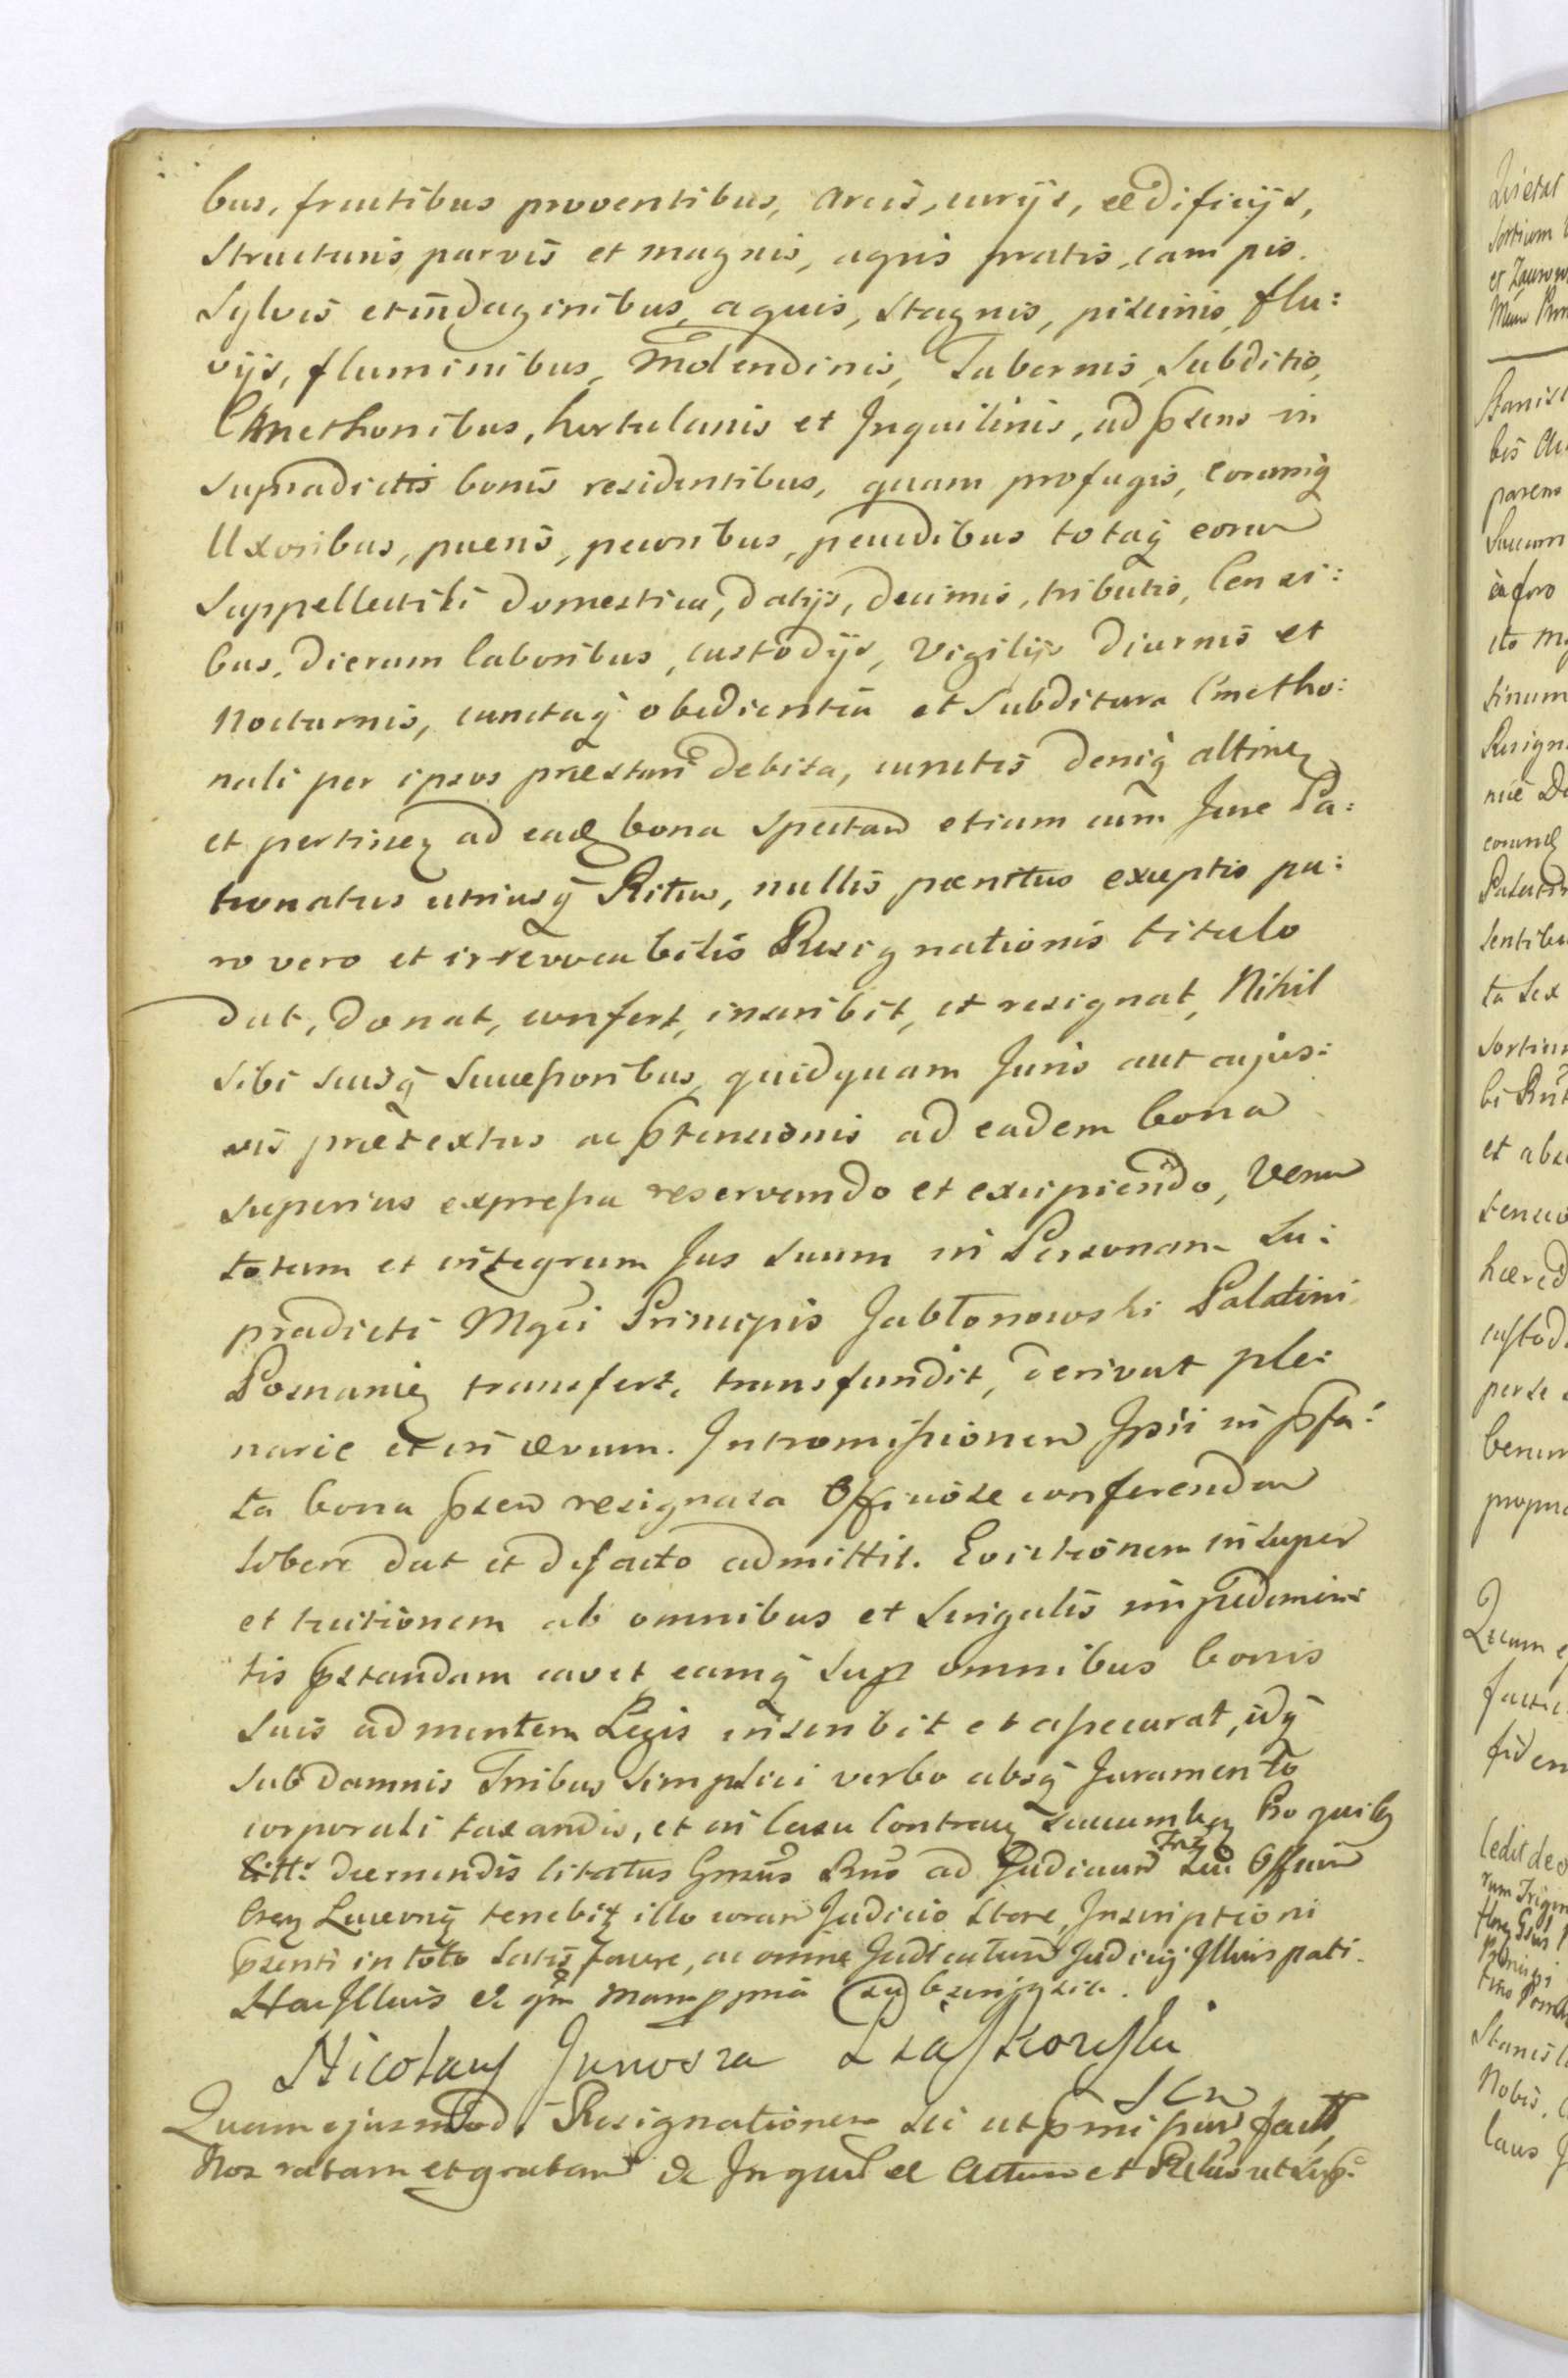 bus, fructibus proventibus, arcis, curijs, ædificijs,
Structuris parvis et magnis, agris pratis, campis.
Sylvis et indaginibus, aquis, Stagnis, piscinis, flu:
vijs, fluminibus, Molendinis, Tabernis, Subditis,
Cmethonibus, hortulanis et Inquilinis, ad pſens in
supradictis bonis residentibus, quam profugis, eorumq̃
Uxoribus, pueris, pecoribus, pecudibus totaq̃ eorum
Suppellectili domestica, datijs, decimis, tributis, Censi:
bus, dierum laboribus, custodijs, Vigilijs diurnis et
Nocturnis, cunctaq̃ obedientia et Subditura Cmetho:
nali per ipsos præstari debita, cunctis deniq̃ attinen
et pertinen ad eadem bona spectan etiam cum Jure Pa:
tronatus utriusq̃ Ritus, nullis pænitus exceptis pu:
ro vero et irrevocabilis Resignationis titulo
dat, donat, confert, inscribit, et resignat, Nihil
sibi suisq̃ Successoribus quidquam Juris aut cujus:
vis prætextus ac ptensionis ad eadem bona
superius expressa reservando et excipiendo, Verum
totum et integrum Jus suum in Personam Su:
pradicti Mgci Principis Jabłonowski Palatini
Posnanien transfert, transfundit, derivat ple:
narie et in ævum. Intromissionem Ipsi in pfa:
ta bona psen resignata Officiose conferendam
libere dat et defacto admittit. Evictionem insuper
et tuitionem ab omnibus et Singulis impedimen:
tis pstandam cavet eamq̃ sup omnibus bonis
suis ad mentem Legis inscribit et assecurat, idq̃
sub damnis Tribus simplici verbo absq̃ Juramento
corporali taxandis, et in Casu Contraven Succumben Pro quibus
decernendis citatus Rñs ad Judicium Officium
Cren tenebitur illo coram Judicio Stare, Inscriptioni
psenti in toto satisfacere, ac omne Judicatum Judicij Illius pati.
Hac Illius manu ppria subscripsit.
Nicolaus Junosza
Quam ejusmodi Resignationem ut pmi
Nos ratam et gratam et